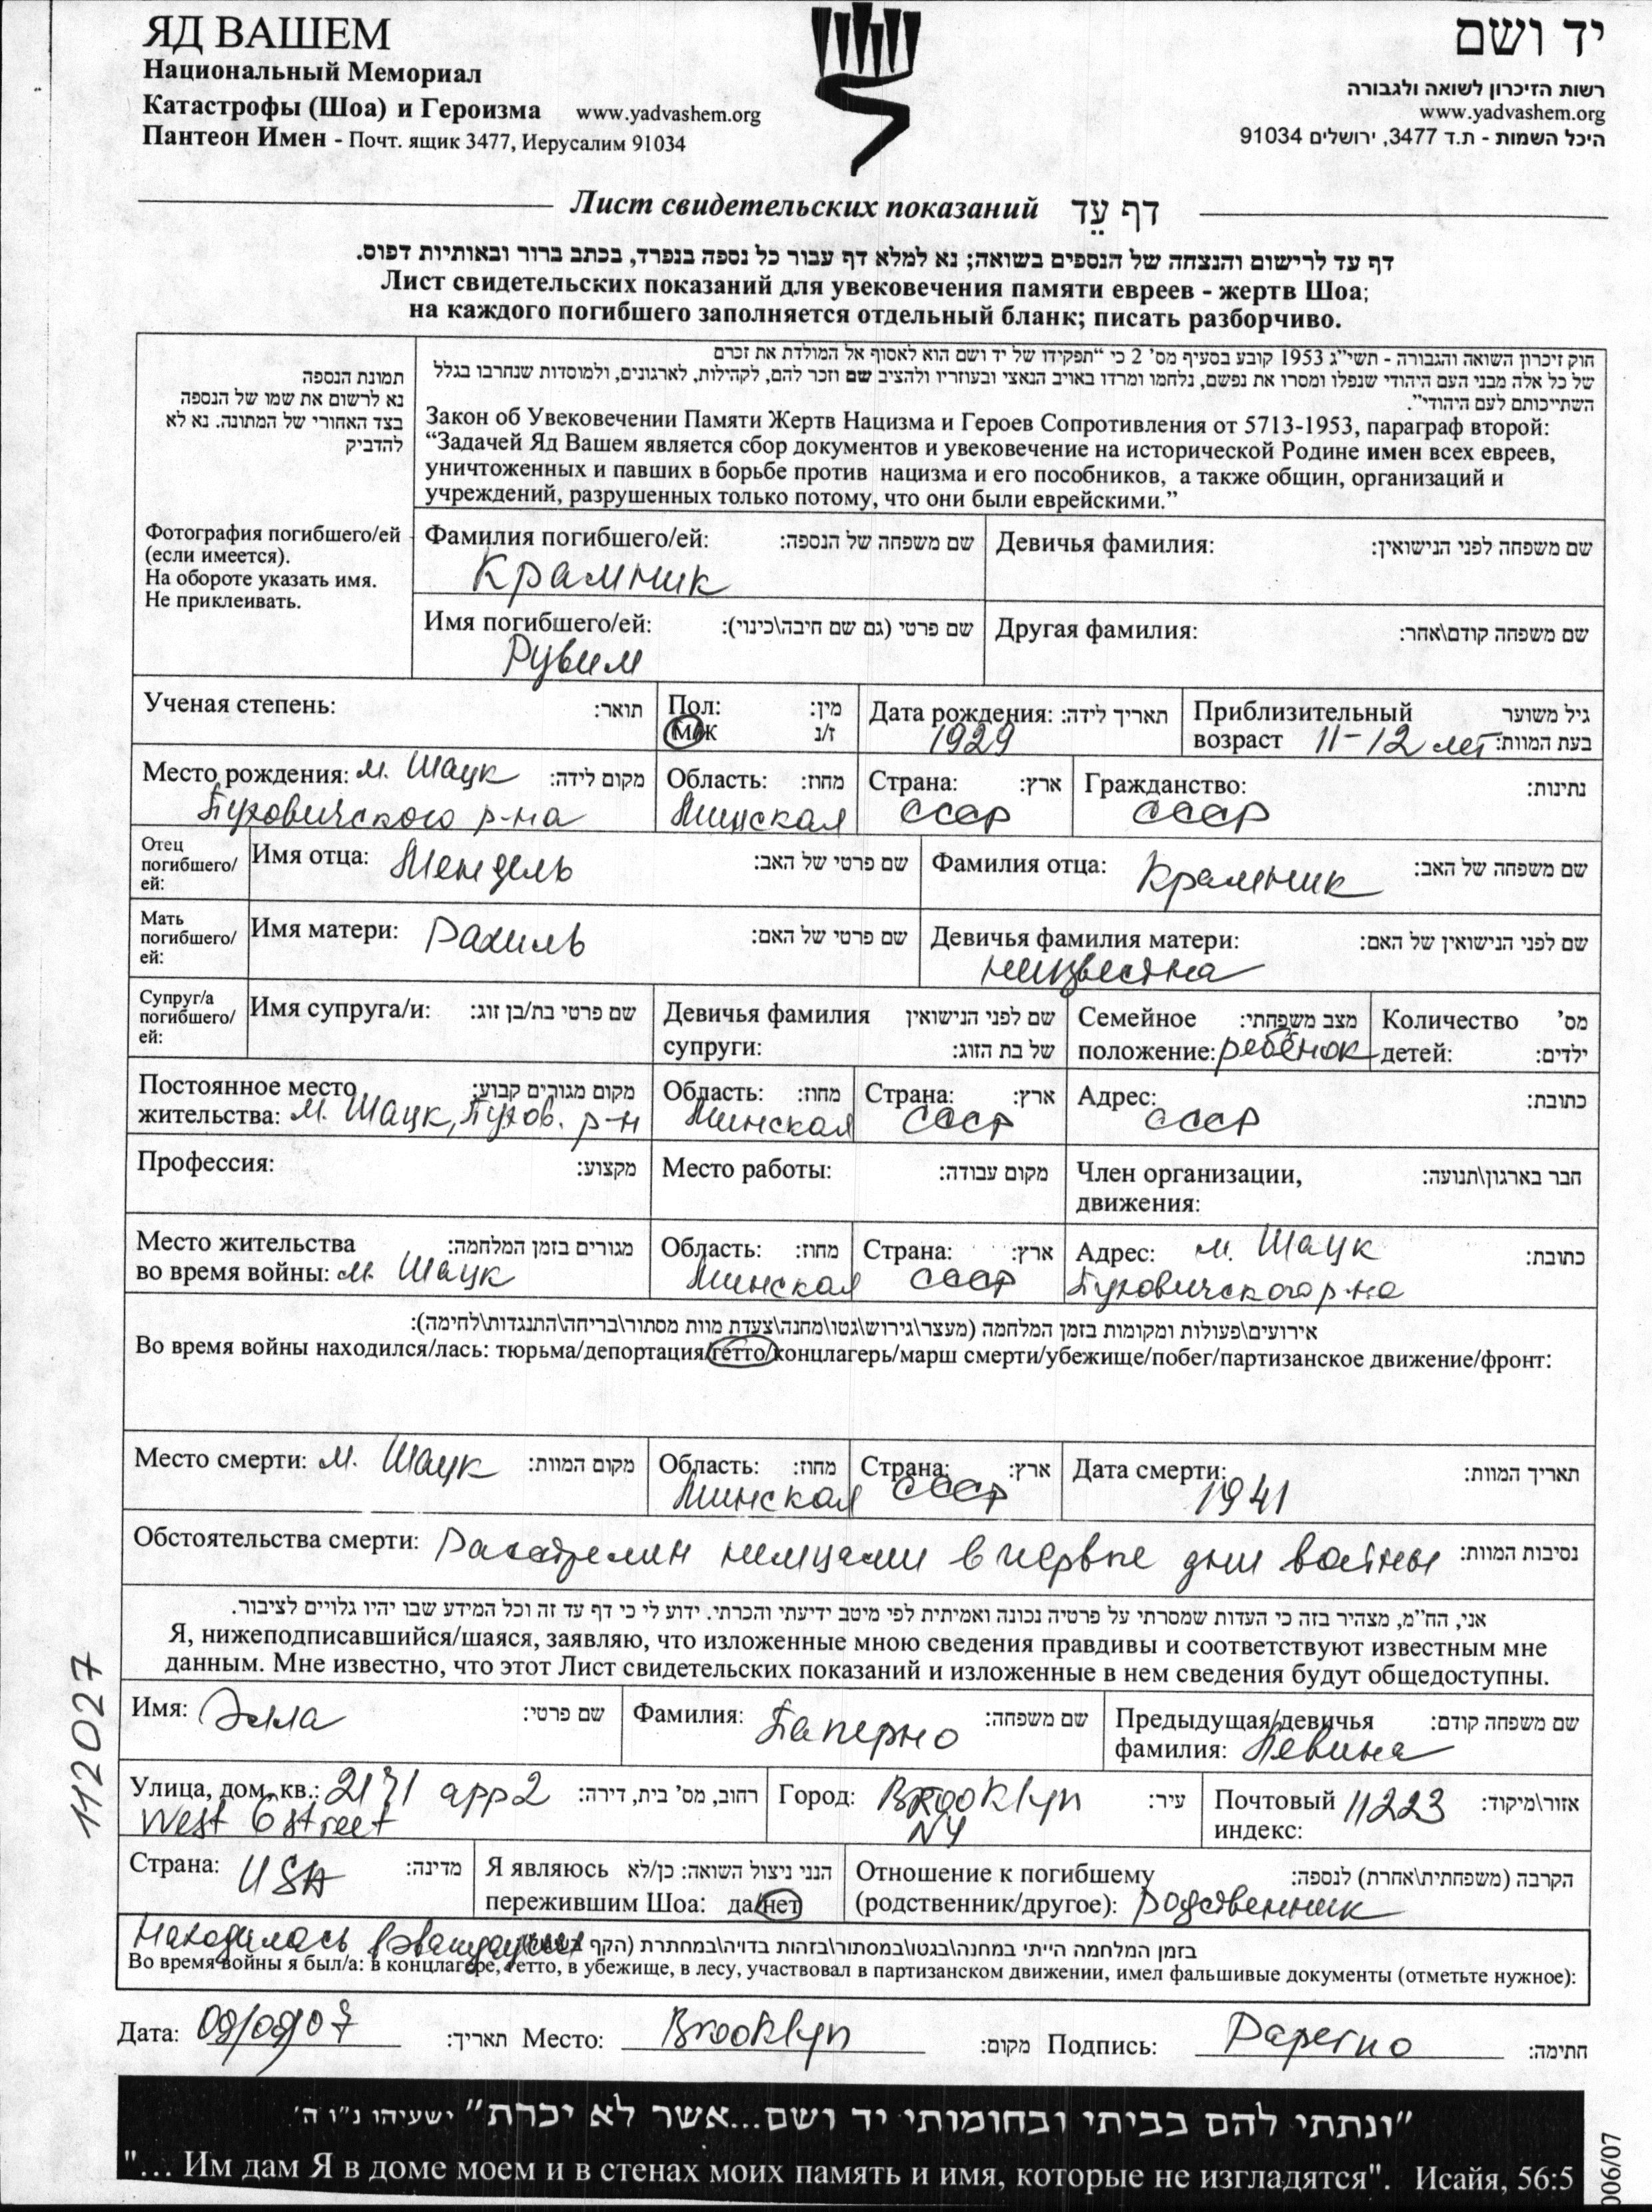 ЯД ВАШЕМ
Национальный Мемориал
Катастрофы (Шоа) и Героизма www.yadvashem.org
Пантеон Имен - Почт. ящик 3477, Иерусалим 91034
יד ושם
רשות הזיכרון לשואה ולגבורה
www.yadvashem.org
היכל השמות - ת.ד 3477, ירושלים 91034
Лист свидетельских показаний דף עֵד
דף עד לרישום והנצחה של הנספים בשואה; נא למלא דף עבור כל נספה בנפרד, בכתב ברור ובאותיות דפוס.
Лист свидетельских показаний для увековечения памяти евреев - жертв Шоа;
на каждого погибшего заполняется отдельный бланк; писать разборчиво.
תמונת הנספה
נא לרשום את שמו של הנספה
בצד האחורי של המתונה. נא לא
להדביק
Фотография погибшего/ей
(если имеется).
На обороте указать имя.
Не приклеивать.
חוק זיכרון השואה והגבורה - תשי"ג 1953 קובע בסעיף מס' 2 כי "תפקידו של יד ושם הוא לאסוף אל המולדת את זכרם
של כל אלה מבני העם היהודי שנפלו ומסרו את נפשם, נלחמו ומרדו באויב הנאצי ובעוזריו ולהציב שם וזכר להם, לקהילות, לארגונים, ולמוסדות שנחרבו בגלל
השתייכותם לעם היהודי".
Закон об Увековечении Памяти Жертв Нацизма и Героев Сопротивления от 5713-1953, параграф второй:
“Задачей Яд Вашем является сбор документов и увековечение на исторической Родине имен всех евреев,
уничтоженных и павших в борьбе против нацизма и его пособников, а также общин, организаций и
учреждений, разрушенных только потому, что они были еврейскими.”
Фамилия погибшего/ей: שם משפחה של הנספה: Девичья фамилия: שם משפחה לפני הנישואין:
Крамник
Имя погибшего/ей: שם פרטי (גם שם חיבה\כינוי): Другая фамилия: שם משפחה קודם\אחר:
Рувим
Ученая степень: תואר: Пол: מין: Дата рождения: תאריך לידה: Приблизительный גיל משוער
М/Ж ז/נ 1929 возраст 11-12 лет בעת המוות:
Место рождения: м. Шацк מקום לידה: Область: מחוז: Страна: ארץ: Гражданство: נתינות:
Пуховичского р-на Минская СССР СССР
Отец погибшего/ей: Имя отца: Мендель שם פרטי של האב: Фамилия отца: Крамник שם משפחה של האב:
Мать погибшего/ей: Имя матери: Рахиль שם פרטי של האם: Девичья фамилия матери: שם לפני הנישואין של האם:
неизвестна
Супруг/а погибшего/ей: Имя супруга/и: שם פרטי בת/בן זוג: Девичья фамилия שם לפני הנישואין Семейное מצב משפחתי: Количество מס'
супруги: של בת הזוג: положение: ребёнок детей: ילדים:
Постоянное место מקום מגורים קבוע: Область: מחוז: Страна: ארץ: Адрес: כתובת:
жительства: м. Шацк, Пухов. р-н Минская СССР СССР
Профессия: מקצוע: Место работы: מקום עבודה: Член организации, חבר בארגון\תנועה:
движения:
Место жительства מגורים בזמן המלחמה: Область: מחוז: Страна: ארץ: Адрес: м. Шацк כתובת:
во время войны: м. Шацк Минская СССР Пуховичского р-на
אירועים\פעולות ומקומות בזמן המלחמה (מעצר\גירוש\גטו\מחנה\צעדת מוות מסתור\בריחה\התנגדות\לחימה):
Во время войны находился/лась: тюрьма/депортация/гетто/концлагерь/марш смерти/убежище/побег/партизанское движение/фронт:
Место смерти: м. Шацк מקום המוות: Область: מחוז: Страна: ארץ: Дата смерти: תאריך המוות:
Минская СССР 1941
Обстоятельства смерти: Расстрелян немцами в первые дни войны נסיבות המוות:
אני, הח"מ, מצהיר בזה כי העדות שמסרתי על פרטיה נכונה ואמיתית לפי מיטב ידיעתי והכרתי. ידוע לי כי דף עד זה וכל המידע שבו יהיו גלויים לציבור.
Я, нижеподписавшийся/шаяся, заявляю, что изложенные мною сведения правдивы и соответствуют известным мне
данным. Мне известно, что этот Лист свидетельских показаний и изложенные в нем сведения будут общедоступны.
Имя: Элла שם פרטי: Фамилия: Паперно שם משפחה: Предыдущая/девичья שם משפחה קודם:
фамилия: Левина
Улица, дом, кв.: 2171 app 2 רחוב, מס' בית, דירה: Город: Brooklyn עיר: Почтовый 11223 אזור\מיקוד:
West 6 street NY индекс:
Страна: USA מדינה: Я являюсь הנני ניצול השואה: כן/לא Отношение к погибшему הקרבה (משפחתית\אחרת) לנספה:
пережившим Шоа: да/нет (родственник/другое): родственник
Находилась в эвакуации בזמן המלחמה הייתי במחנה\בגטו\במסתור\בזהות בדויה\במחתרת (הקף
Во время войны я был/а: в концлагере, гетто, в убежище, в лесу, участвовал в партизанском движении, имел фальшивые документы (отметьте нужное):
Дата: 09/09/07 תאריך: Место: Brooklyn מקום: Подпись: Paperno חתימה:
"ונתתי להם בביתי ובחומותי יד ושם...אשר לא יכרת" ישעיהו נ"ו ה'
"... Им дам Я в доме моем и в стенах моих память и имя, которые не изгладятся". Исайя, 56:5
112027
006/07